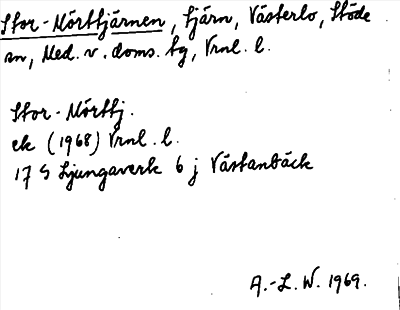 Stor-Mörttjärnen, tjärn, Västerlo, Stöde
sn, Med. v. doms. tg, Vrnl. l.
Stor-Mörttj.
ek (1968) Vrnl. l.
17 G Ljungaverk 6 j Västanbäck
A.-L. W. 1969.